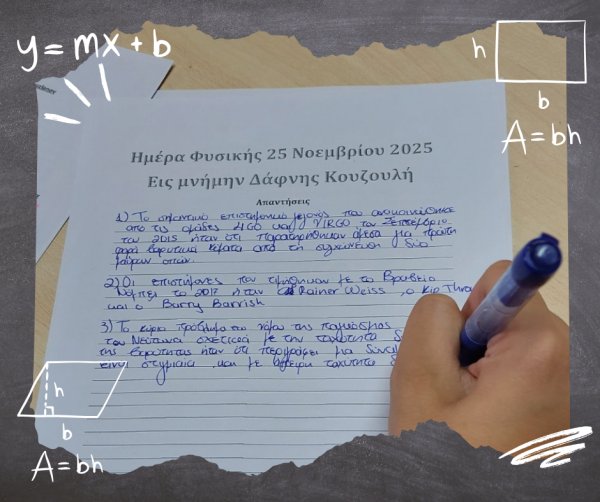 y = mx + b
h
b
A = bh
Ημέρα Φυσικής 25 Νοεμβρίου 2025
Εις μνήμην Δάφνης Κουζουλή
Απαντήσεις
1) Το σημαντικό επιστημονικό γεγονός που ανακοινώθηκε
από τις ομάδες LIGO και VIRGO τον Σεπτέμβριο
του 2015 ήταν ότι παρατηρήθηκαν άμεσα για πρώτη
φορά βαρυτικά κύματα από τη συγχώνευση δύο
μαύρων οπών.
2) Οι επιστήμονες που τιμήθηκαν με το Βραβείο
Νόμπελ το 2017 ήταν Rainer Weiss, ο Kip
και ο Barry Barrish
3) Το κύριο πρόβλημα του νόμου της παγκόσμιας
του Νεύτωνα σχετικά με την ταχύτητα
της βαρύτητας ήταν ότι περιγράφει μια
είναι στιγμιαία και με άπειρη ταχύτητα
h
b
A = bh